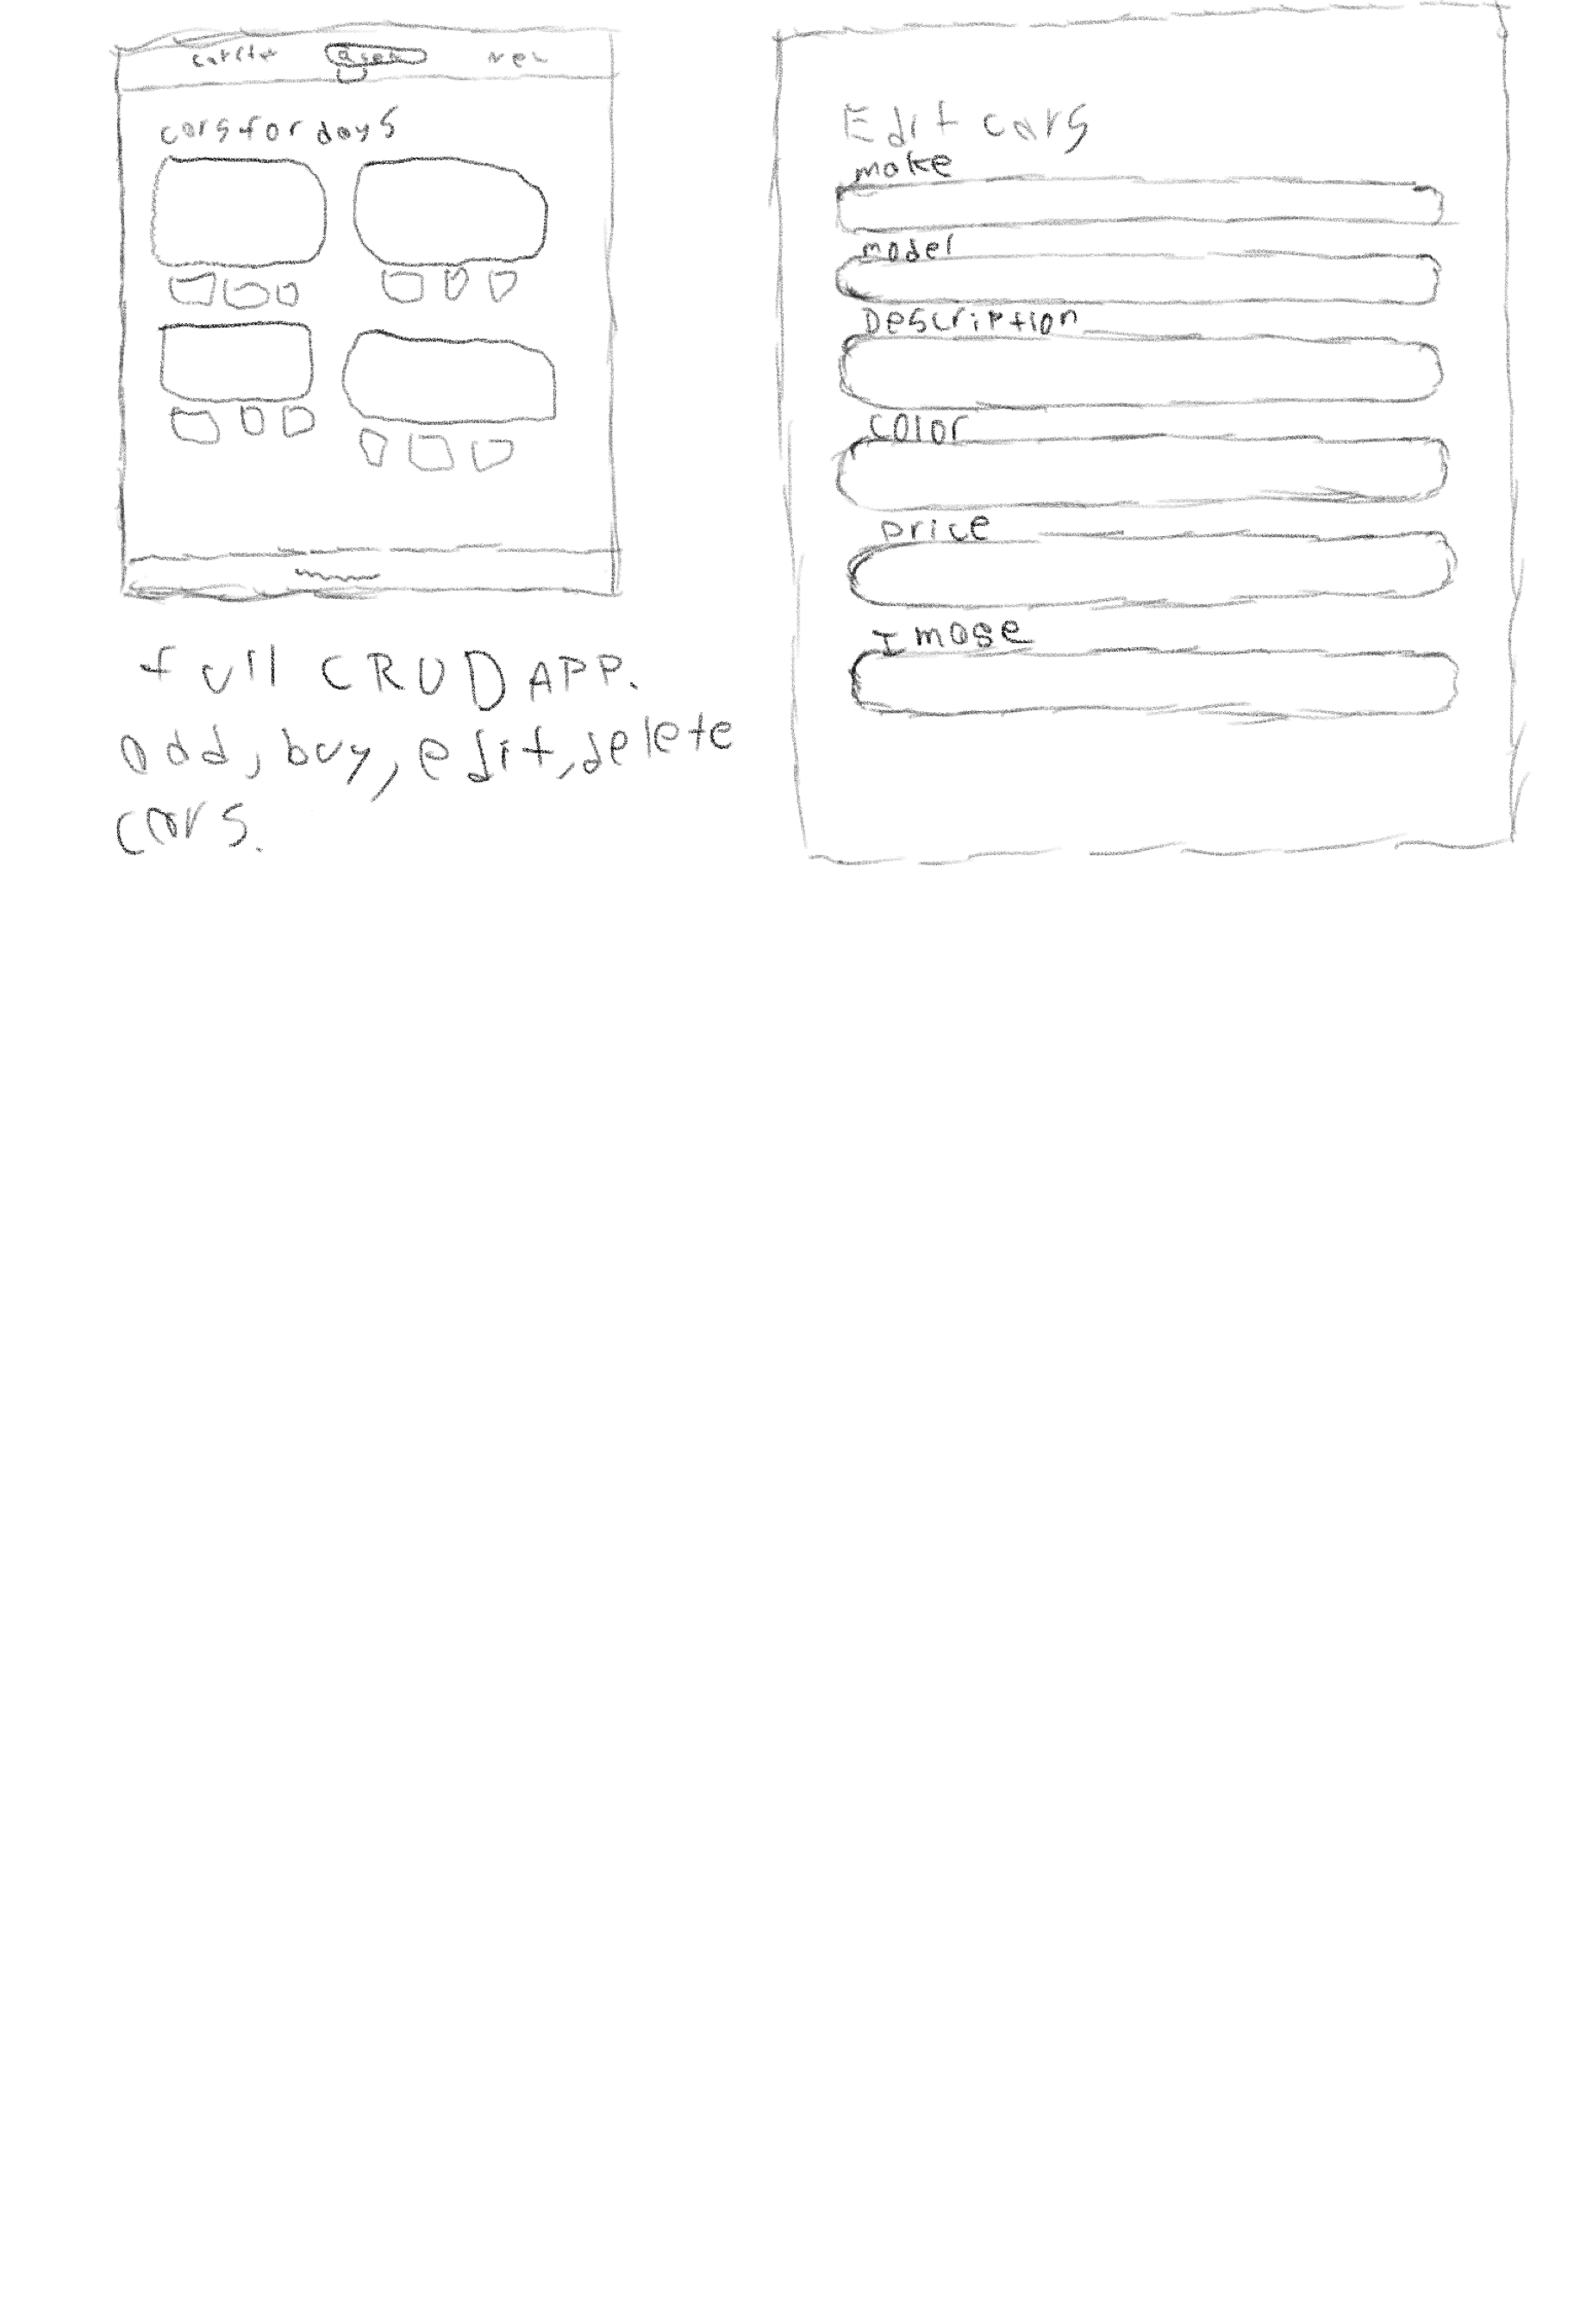 cars for days
full CRUD APP.
add, buy, edit, delete
cars.
Edit cars
make
model
Description
color
price
Image